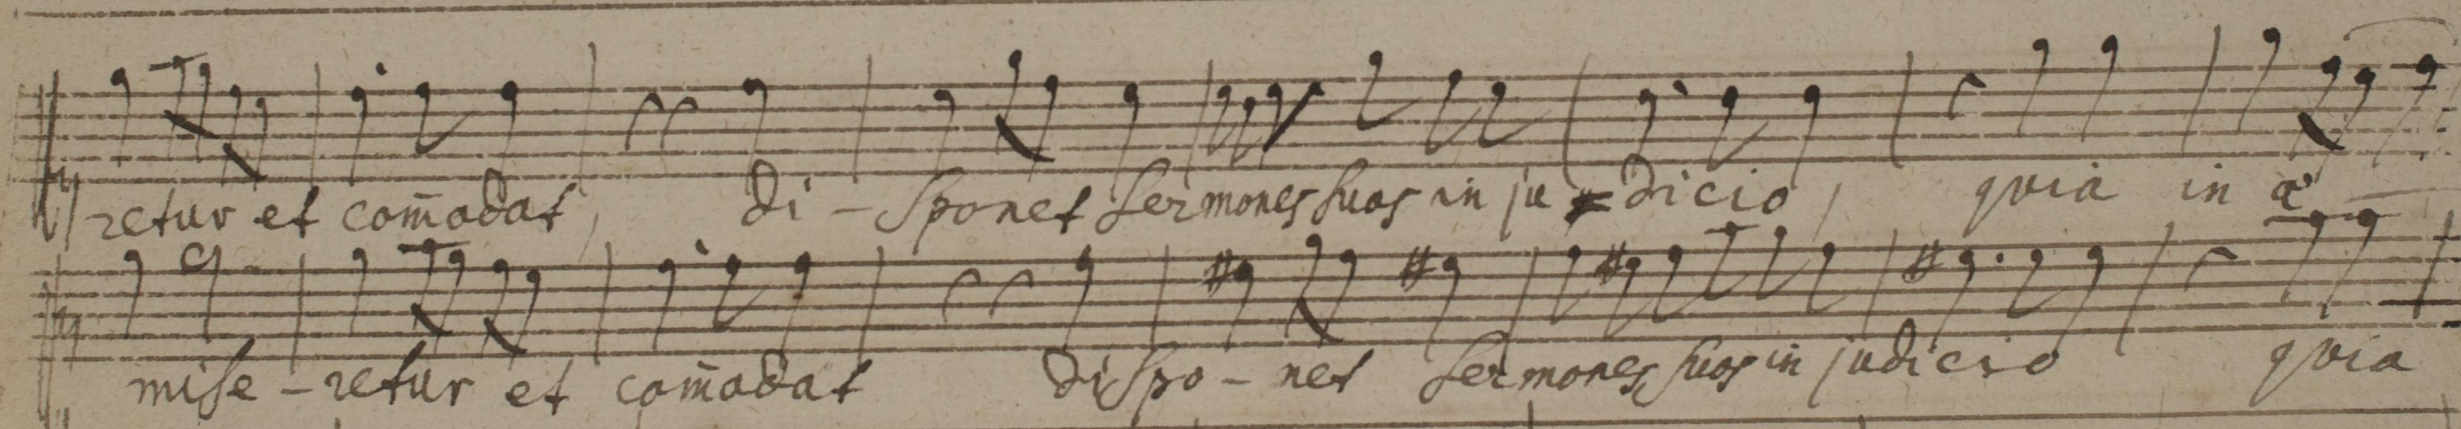 retur et com̄odat, di-sponet sermones suos in ju=dicio, quia in æ
mise-retur et com̄odat dispo-net sermones suos in judicio quia